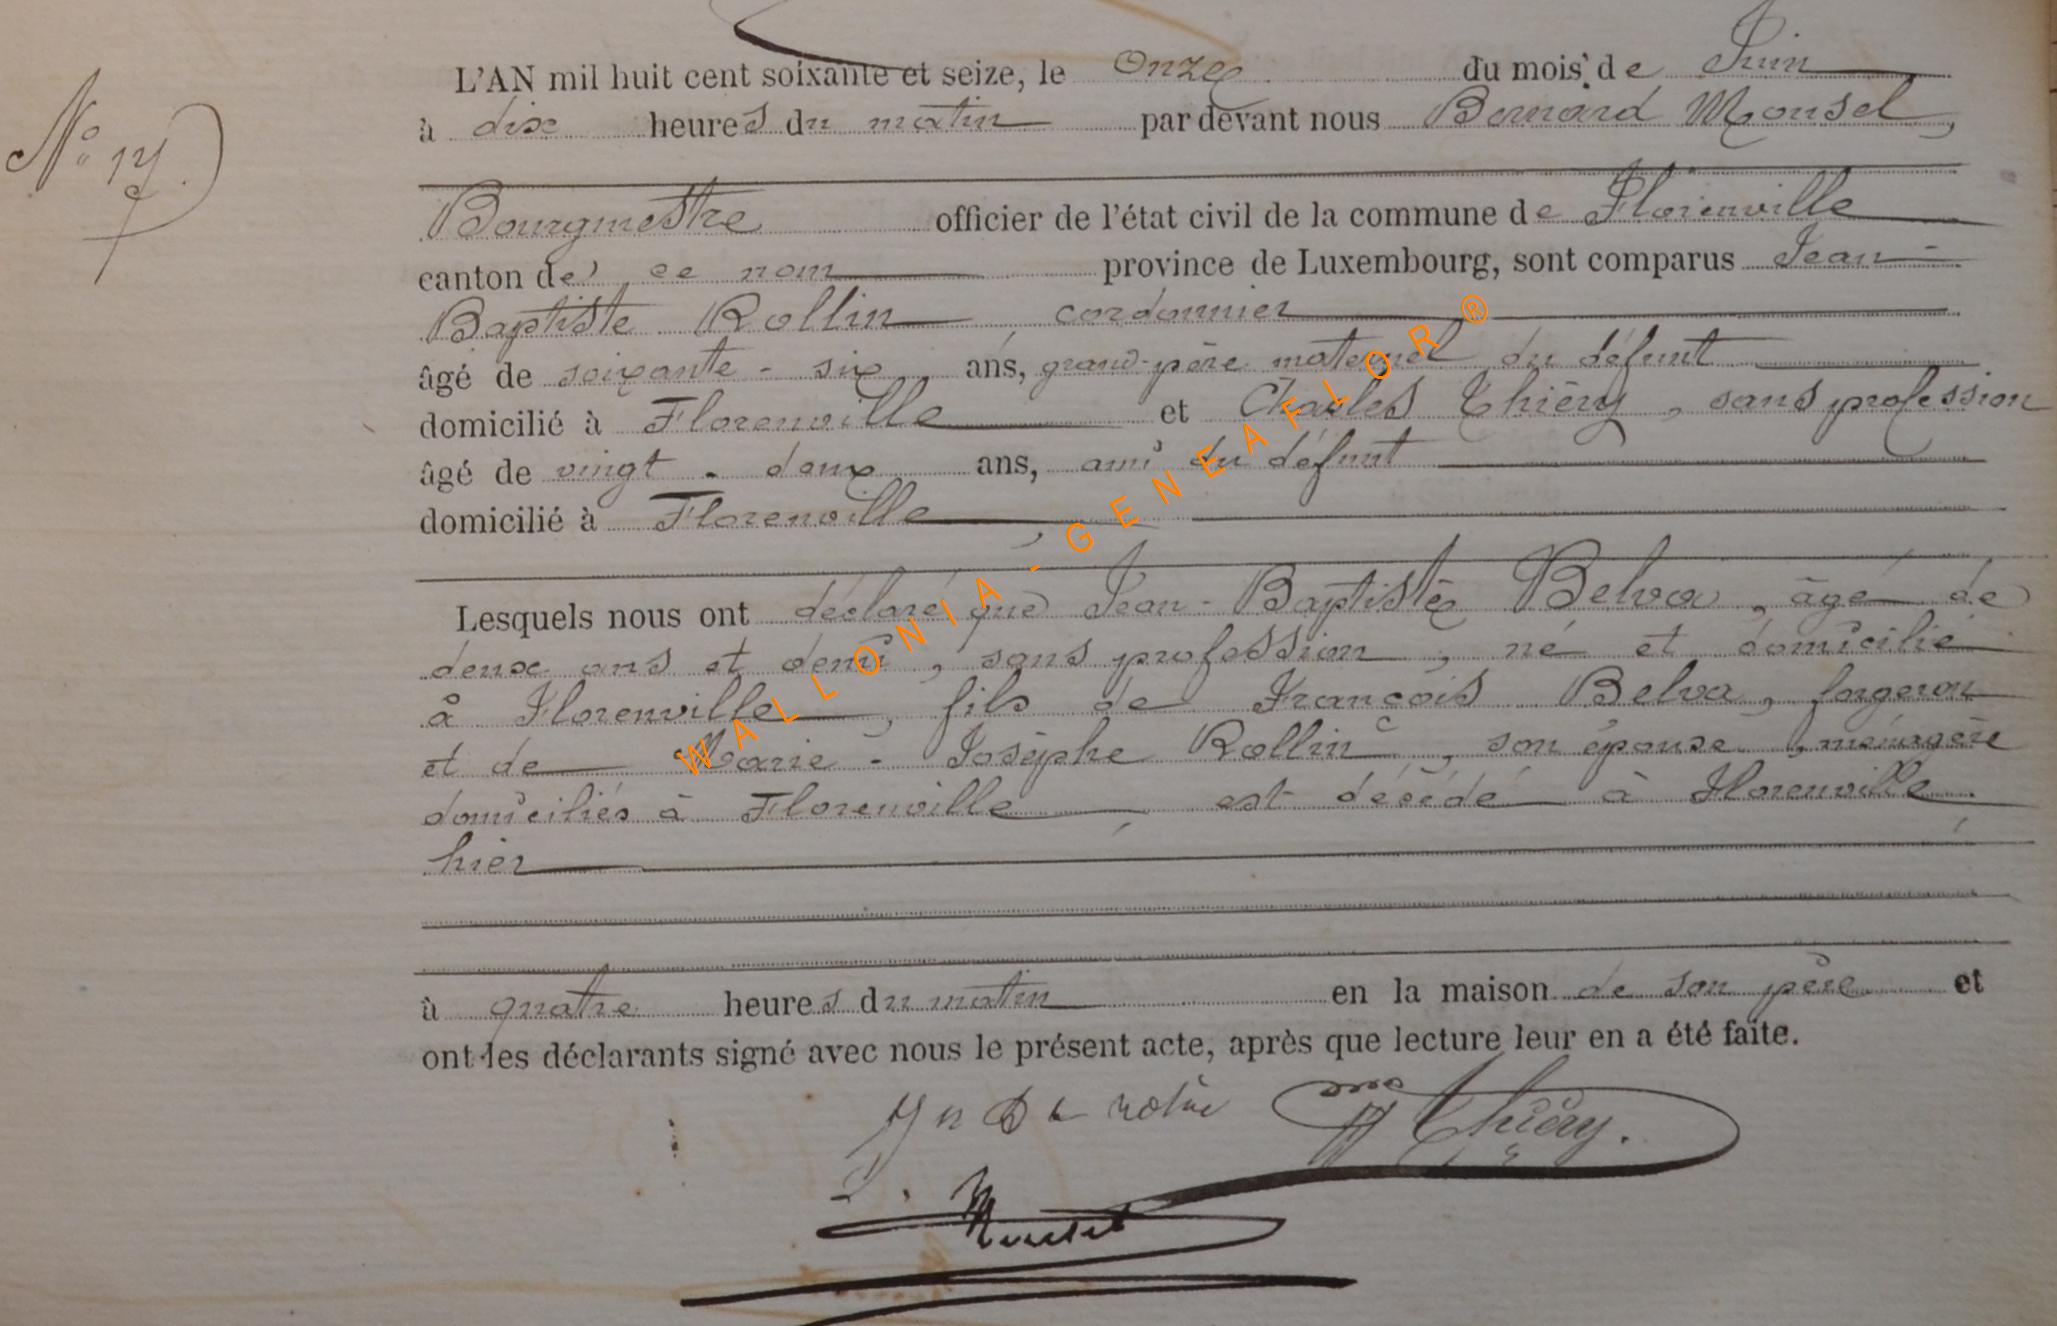 N° 17
L'AN mil huit cent soixante et seize, le Onze du mois de Juin
à dix heures du matin par devant nous Bernard Mousel,
Bourgmestre officier de l'état civil de la commune de Florenville
canton de ce nom province de Luxembourg, sont comparus Jean-
Baptiste Rollin cordonnier
âgé de soixante-six ans, grand-père maternel du défunt
domicilié à Florenville et Charles Thiéry, sans profession
âgé de vingt-deux ans, ami du défunt
domicilié à Florenville
Lesquels nous ont déclaré que Jean-Baptiste Belva, âgé de
deux ans et demi, sans profession, né et domicilié
à Florenville, fils de François Belva, forgeron
et de Marie-Josèphe Rollin, son épouse, ménagère
domiciliés à Florenville est décédé à Florenville
hier
à quatre heures du matin en la maison de son père et
ont les déclarants signé avec nous le présent acte, après que lecture leur en a été faite.
Thiéry.
Mousel
WALLONIA-GENEAFLOR®